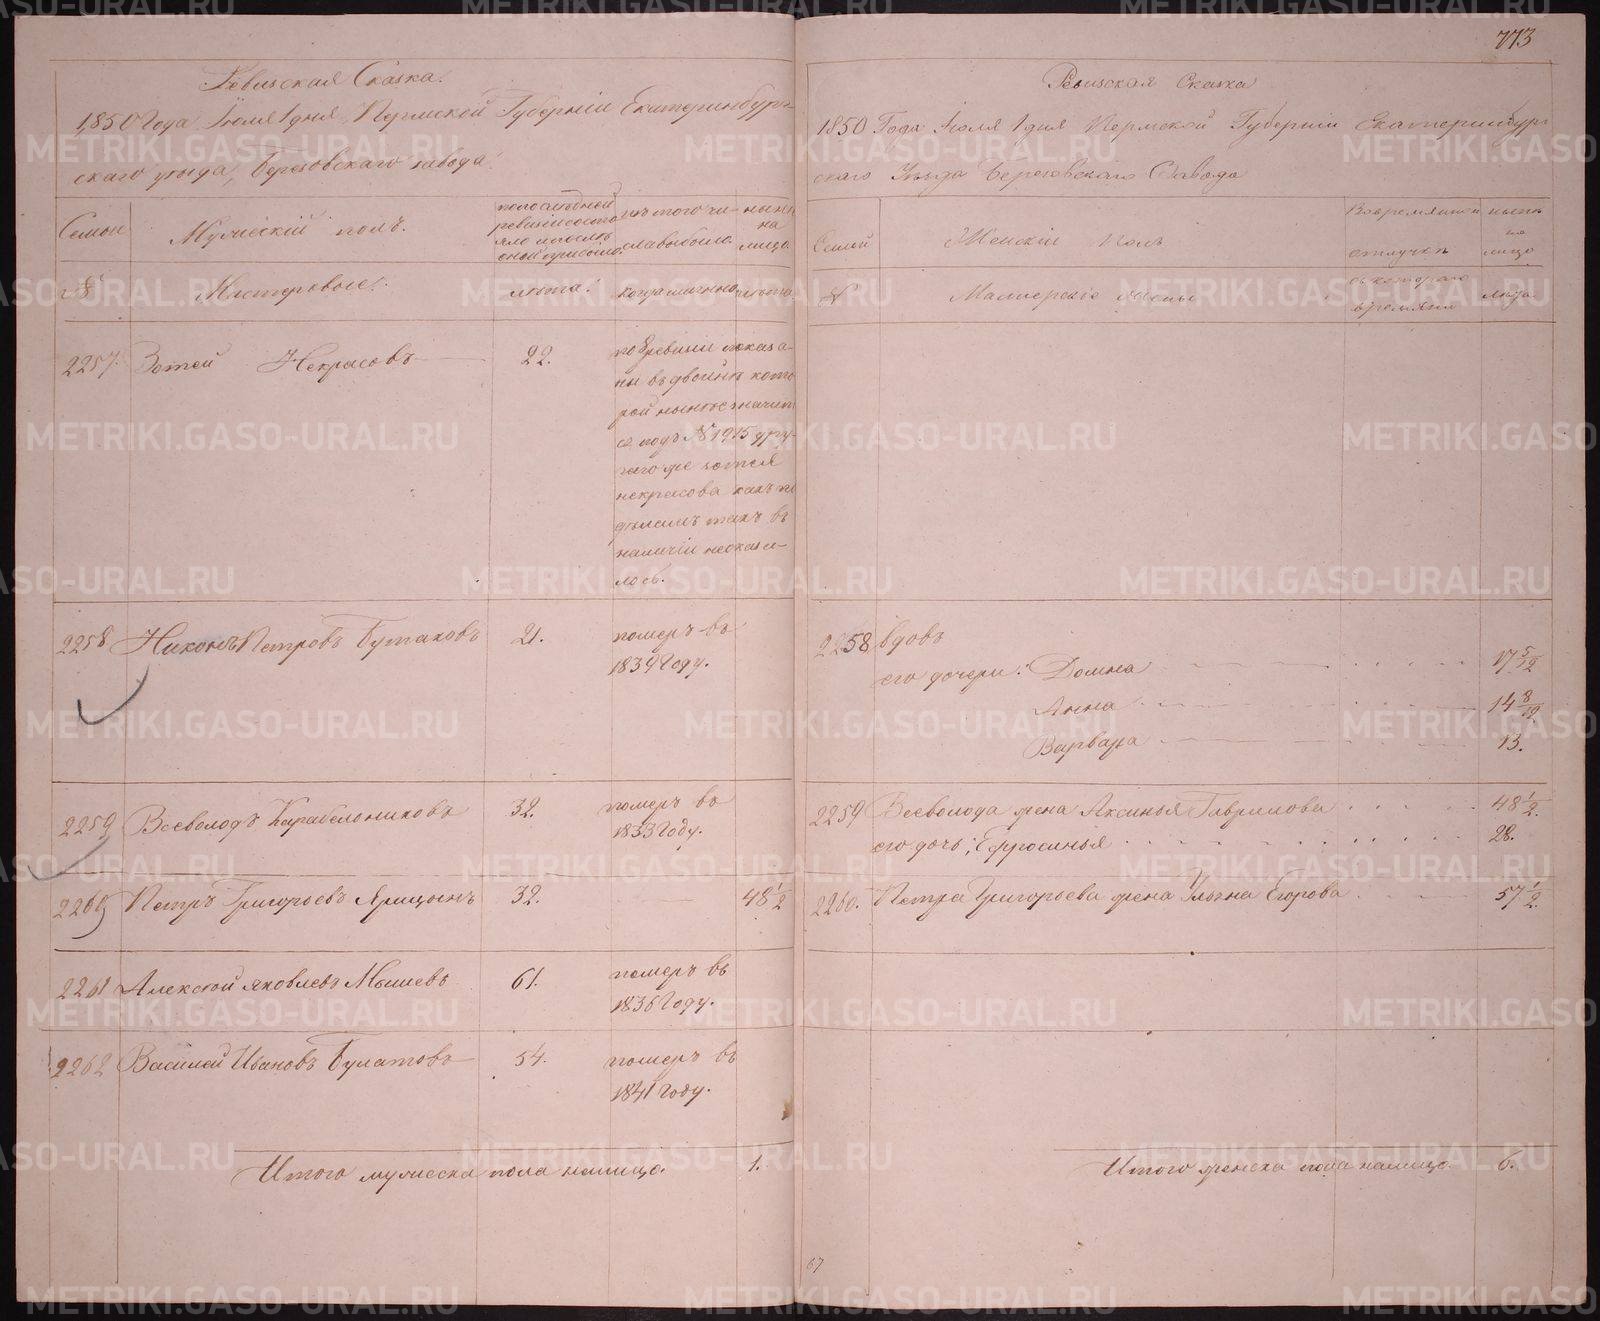 773
Ревизская Сказка.
1850 Года Іюля 1 дня, Пермской Губерніи Екатеринбург-
скаго уезда, Березовскаго завода
Семьи
Мужескій полъ.
по последней
ревизіи состо
яло и после
оной прибыло.
изъ того чи-
сла выбыло.
ныне
на
лицо
№
Мастеровые:
лета.
когда именно
лета.
2257.
Зотей Некрасовъ
22.
по 8 ревизіи показа-
нъ въ двойне кото
рой ныне значит
ся подъ № 1915 дру-
гаго же Зотея
Некрасова какъ по
деламъ такъ въ
наличіи неоказа-
лось.
2258
Никонъ Петровъ Бутаковъ
21.
померъ въ
1834 Году.
2259
Всеволодъ Карабельниковъ
32.
померъ въ
1833 Году.
2260
Петръ Григорьевъ Ярицынъ
32.
48 1/2
2261
Алексей Яковлевъ Мышевъ
61.
померъ въ
1836 Году.
2262
Василей Ивановъ Булатовъ
54.
померъ въ
1841 Году.
Итого мужеска пола налицо.
1.
Ревизская Сказка
1850 Года Іюля 1 дня Пермской Губерніи Екатеринбург
скаго Уезда Березовскаго Завода
Семьи
Женскій Полъ
Во временной
отлучке
ныне
на
лицо
№
Мастерскіе жены
съ котораго
времяни
лета.
2258
вдовъ
его дочери: Домна
17 5/12
Анна
14 8/12
Варвара
13.
2259
Всеволода жена Аксинья Гаврилова
48 1/2.
его дочь: Ефросинья
28.
2260.
Петра Григорьева жена Ульяна Егорова
57 1/2.
Итого женска пола налицо.
6.
67
METRIKI.GASO-URAL.RU